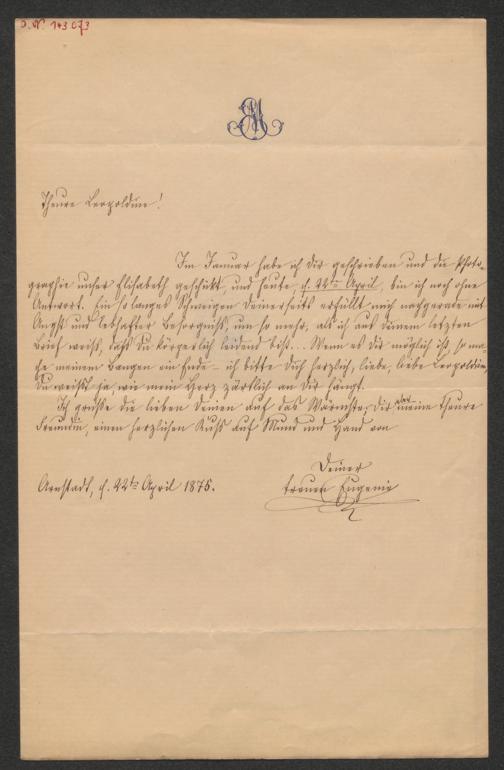 J. N. 143 073
Theure Leopoldine!
Im Januar habe ich Dir geschrieben und die Photo-
graphie unser Elisabeth geschickt, und heute, d. 22ten April, bin ich noch ohne
Antwort. Ein so langes Schweigen Deinerseits erfüllt mich nachgerade mit
Angst und lebhafter Besorgniß, um so mehr, als ich aus Deinem letzten
Brief weiß, daß Du körperlich leidend bist... Wenn es Dir möglich ist, so ma-
che meinem Bangen ein Ende – ich bitte Dich herzlich, liebe, liebe Leopoldine,
Du weißt ja, wie mein Herz zärtlich an Dir hängt.
Ich grüße die lieben Deinen auf das Wärmste, Dir aber, meine theure
Freundin, einen herzlichen Kuß auf Mund und Hand von
Deiner
treuen Eugenie
Arnstadt, d. 22ten April 1875.